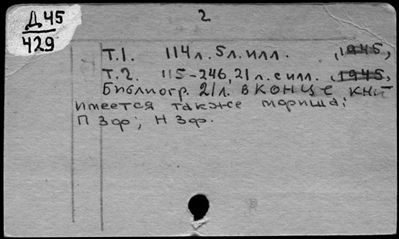 Д45
429
2
Т.1. 114л. 5л. илл. , 1945,
Т.2. 115-246, 21 л. с илл. , 1945,
Библиогр. 21л. в конце книг
имеется также
П 3ф; Н 3ф.